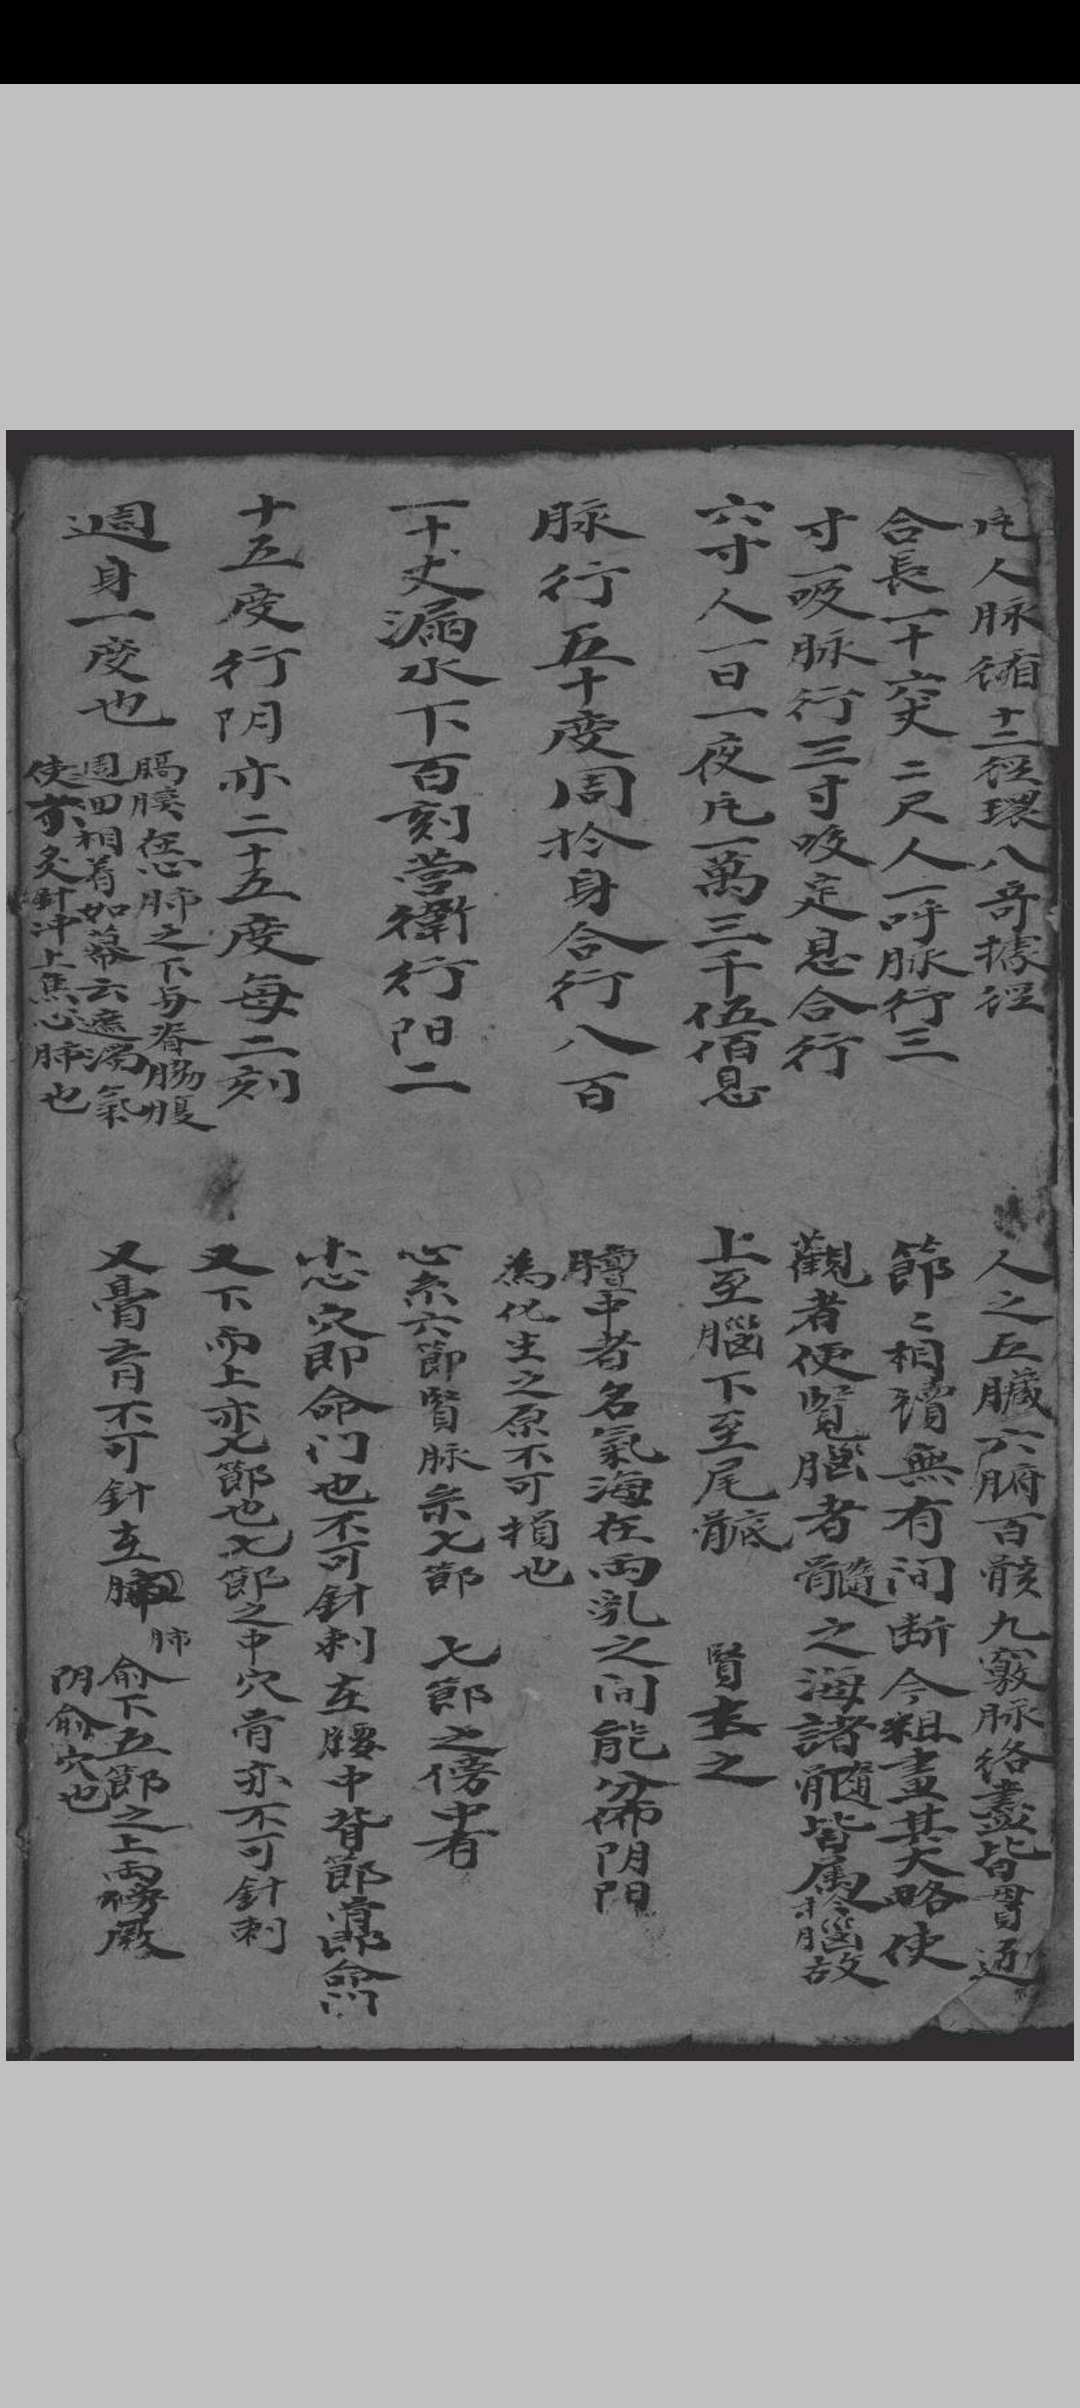 凢人脉循十二経環八竒據経
合長一十六丈二尺人一呼脉行三
寸一吸脉行三寸呼吸定息合行
六寸人一日一夜凢一萬三千伍佰息
脉行五十度周扵身合行八百
一十丈漏水下百刻营衛行阳二
十五度行阴亦二十五度每二刻
週身一度也
膈膜在心肺之下与脊肠腹
周囬相着如幕云遮濁氣
使亦炙針冲上焦心肺也
人之五臟六腑百骸九竅脉络盡皆貫通
節〻相讀無有间断今粗畫其大略使
觀者便覧腦者髓之海諸髓皆属扵腦故
上至腦下至尾骶 腎主之
膻中者名氣海在两乳之间能分佈阴阳
為化生之原不可損也
心系六節腎脉系七節 七節之傍中有
小心穴即命门也不可針刺左腰中背節膏節命门
又下而上亦七節也七節之中穴肓亦不可針刺
又膏肓不可針在肺
肺
俞下五節之上两傍厥
阴俞穴也